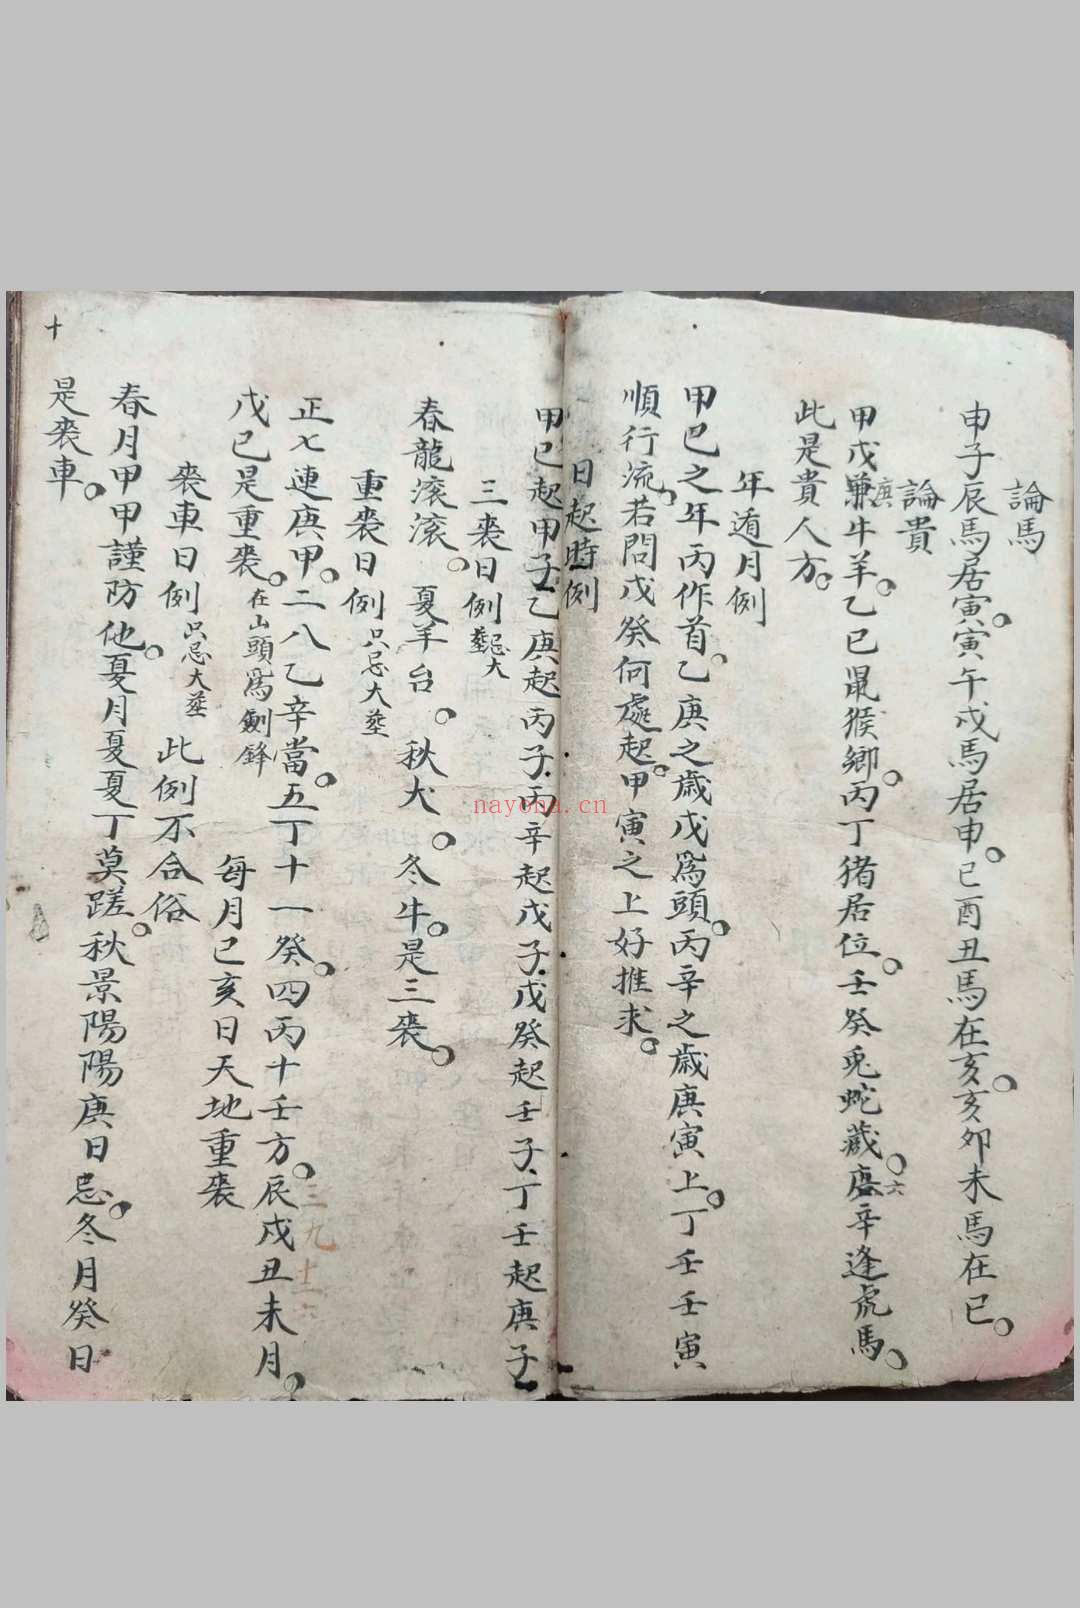 論馬
申子辰馬居寅。寅午戌馬居申。巳酉丑馬在亥。亥卯未馬在巳。
論貴
甲戊庚牛羊。乙己鼠猴鄉。丙丁猪居位。壬癸兎蛇藏。六辛逢虎馬。
此是貴人方。
年遁月例
甲己之年丙作首。乙庚之歲戊爲頭。丙辛之歲庚寅上。丁壬壬寅
順行流。若問戊癸何處起。甲寅之上好推求。
日起時例
甲己起甲子。乙庚起丙子。丙辛起戊子。戊癸起壬子。丁壬起庚子
三喪日例 忌大塟
春龍滚滚。夏羊台。秋犬。冬牛。是三喪。
重喪日例 只忌大塟
正七連庚甲。二八乙辛當。五丁十一癸。四丙十壬方。辰戌丑未月。
三九十六
戊己是重喪。在山頭爲劍鋒 每月巳亥日天地重喪
喪車日例 只忌大塟 此例不合俗
春月甲甲謹防他。夏月夏夏丁莫蹉。秋景陽陽庚日忌。冬月癸日
是喪車。
十
nayona.cn